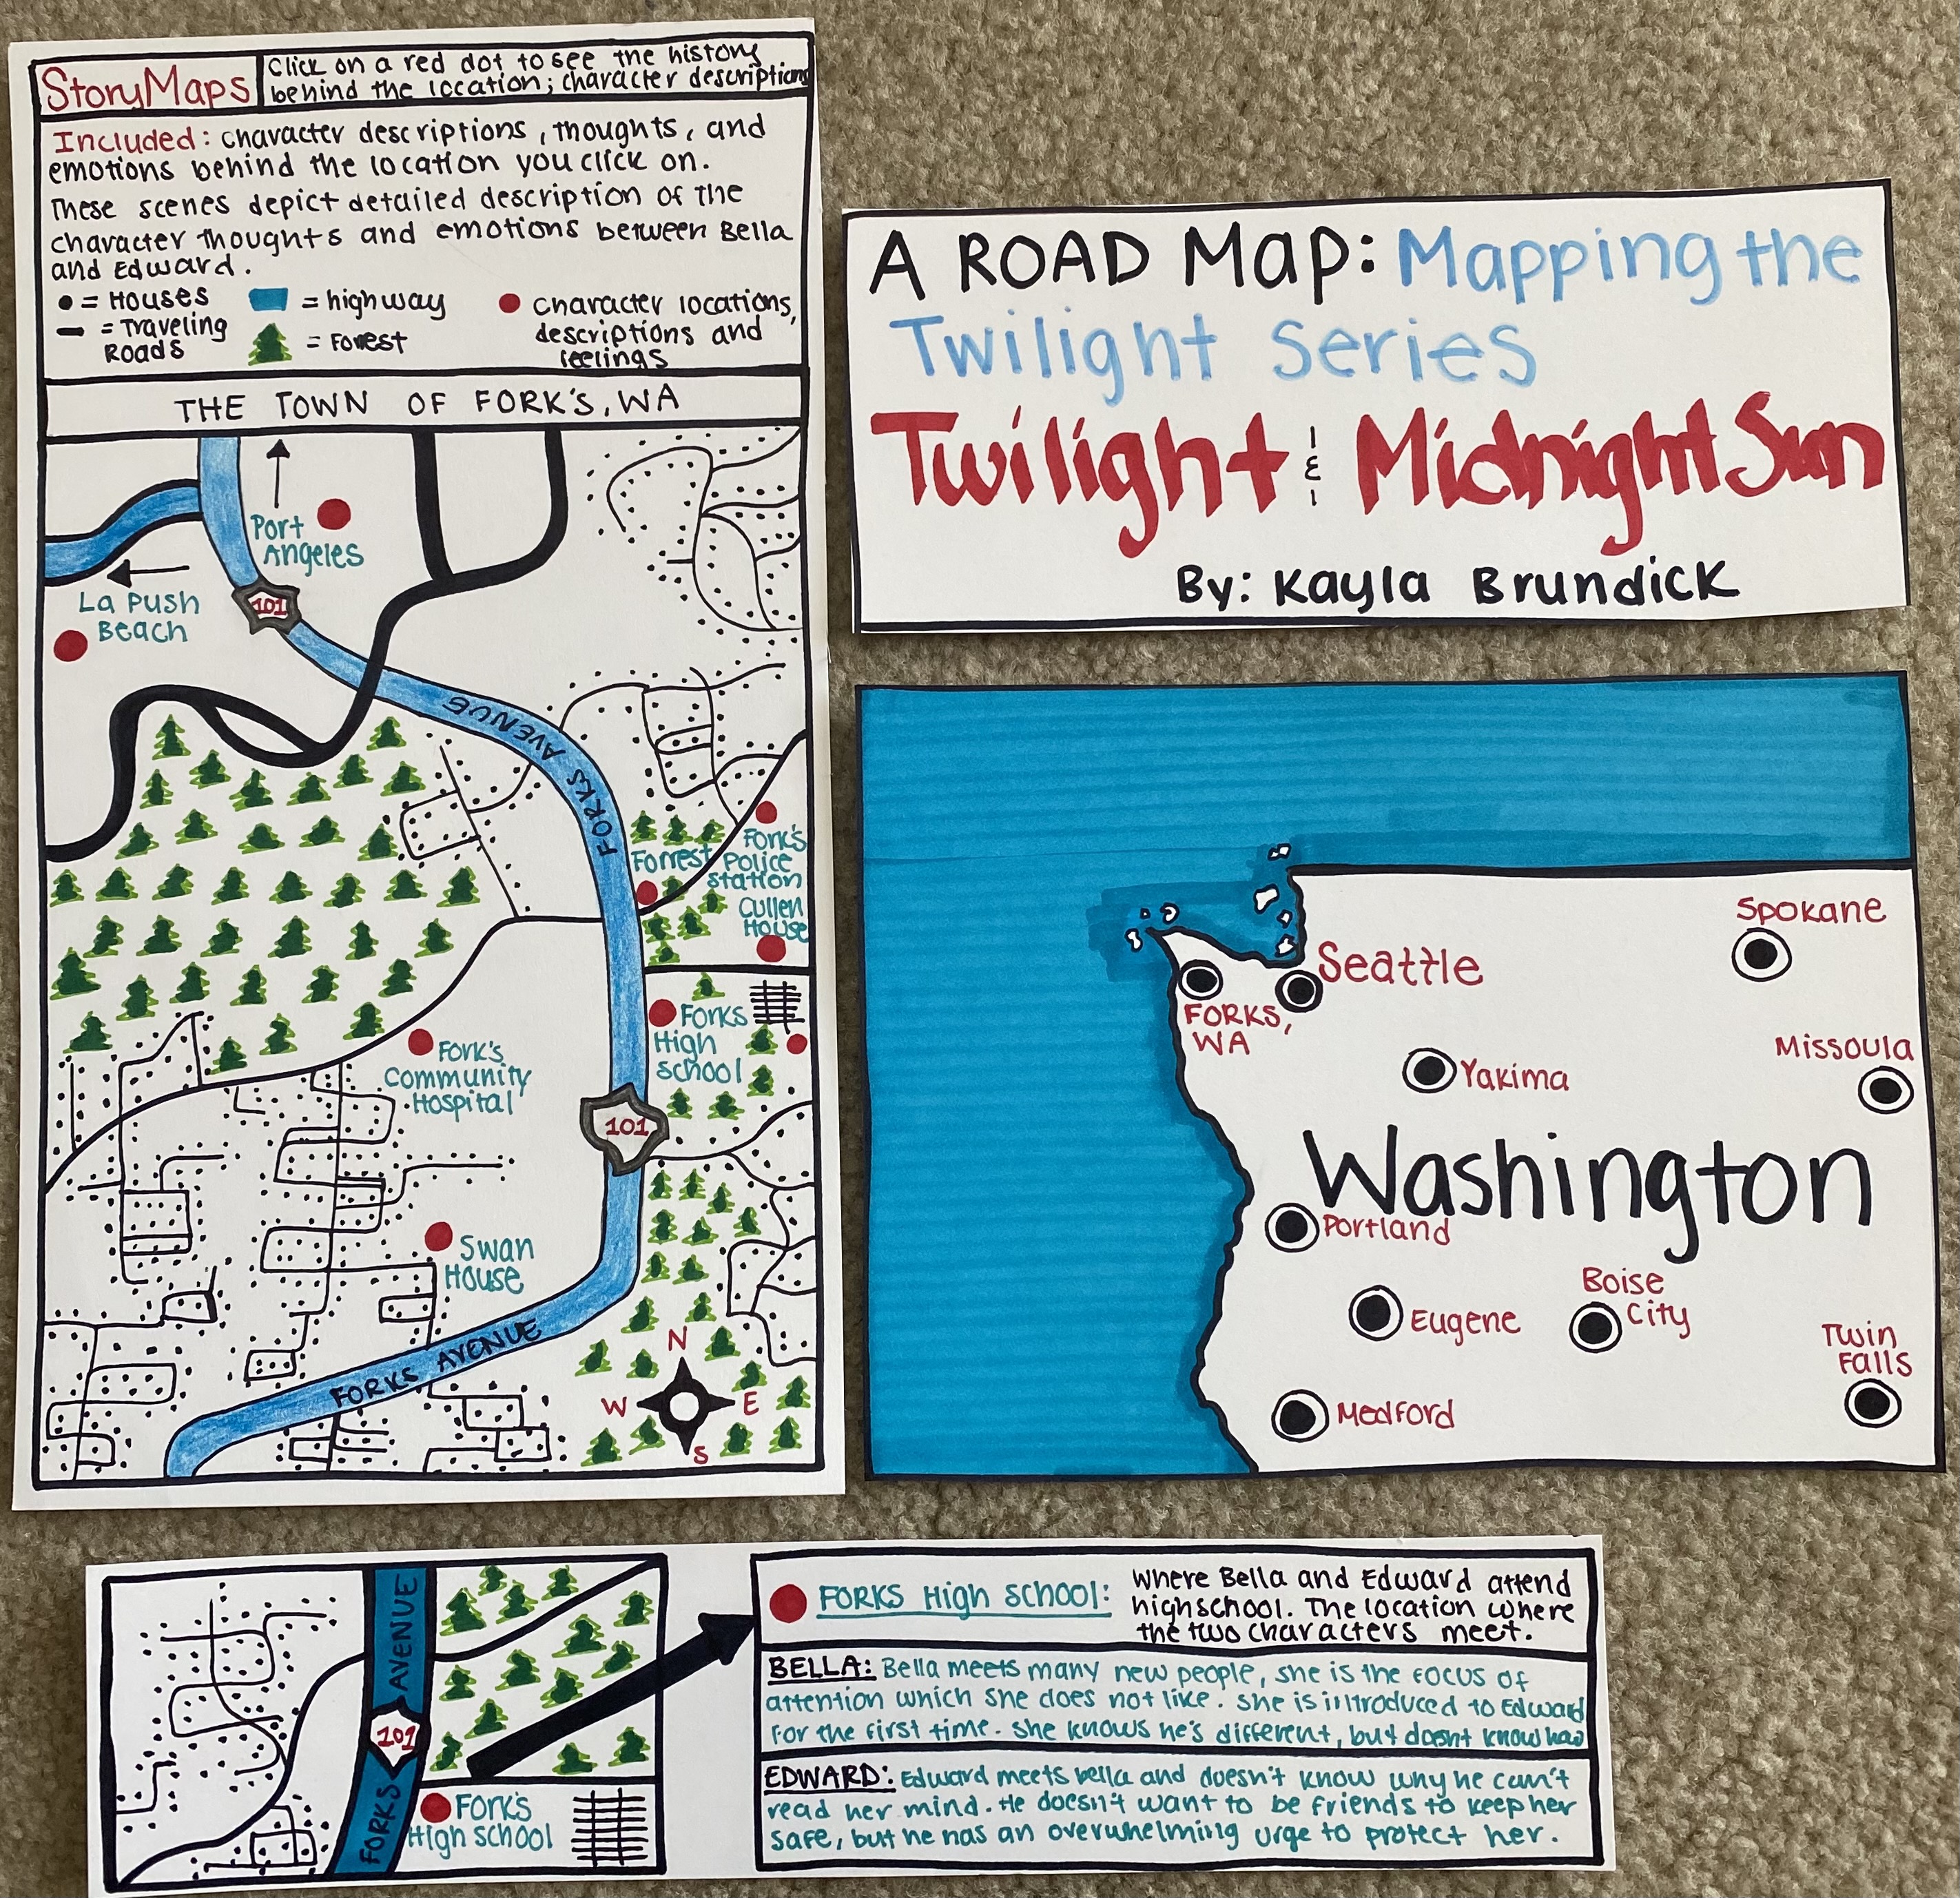 StoryMaps
Click on a red dot to see the history
behind the location; character descriptions
Included: character descriptions, thoughts, and
emotions behind the location you click on.
These scenes depict detailed description of the
character thoughts and emotions between Bella
and Edward.
• = Houses
= highway
character locations,
descriptions and
feelings
= Traveling
Roads
= Forest
THE TOWN OF FORK'S, WA
Port
Angeles
La Push
Beach
101
FORKS AVENUE
Forrest
Fork's
Police
station
Cullen
House
Forks
High
school
Fork's
Community
Hospital
101
Swan
House
FORKS AVENUE
N
W
E
S
A ROAD Map: Mapping the
Twilight Series
Twilight & Midnight Sun
By: Kayla Brundick
Spokane
Seattle
FORKS,
WA
Missoula
Yakima
Washington
Portland
Boise
City
Eugene
Twin
Falls
Medford
FORKS AVENUE
101
Fork's
High school
FORKS High School:
where Bella and Edward attend
highschool. The location where
the two characters meet.
BELLA: Bella meets many new people, she is the focus of
attention which she does not like. she is introduced to Edward
for the first time. she knows he's different, but doesnt know how
EDWARD: Edward meets bella and doesn't know why he can't
read her mind. He doesn't want to be friends to keep her
safe, but he has an overwhelming urge to protect her.